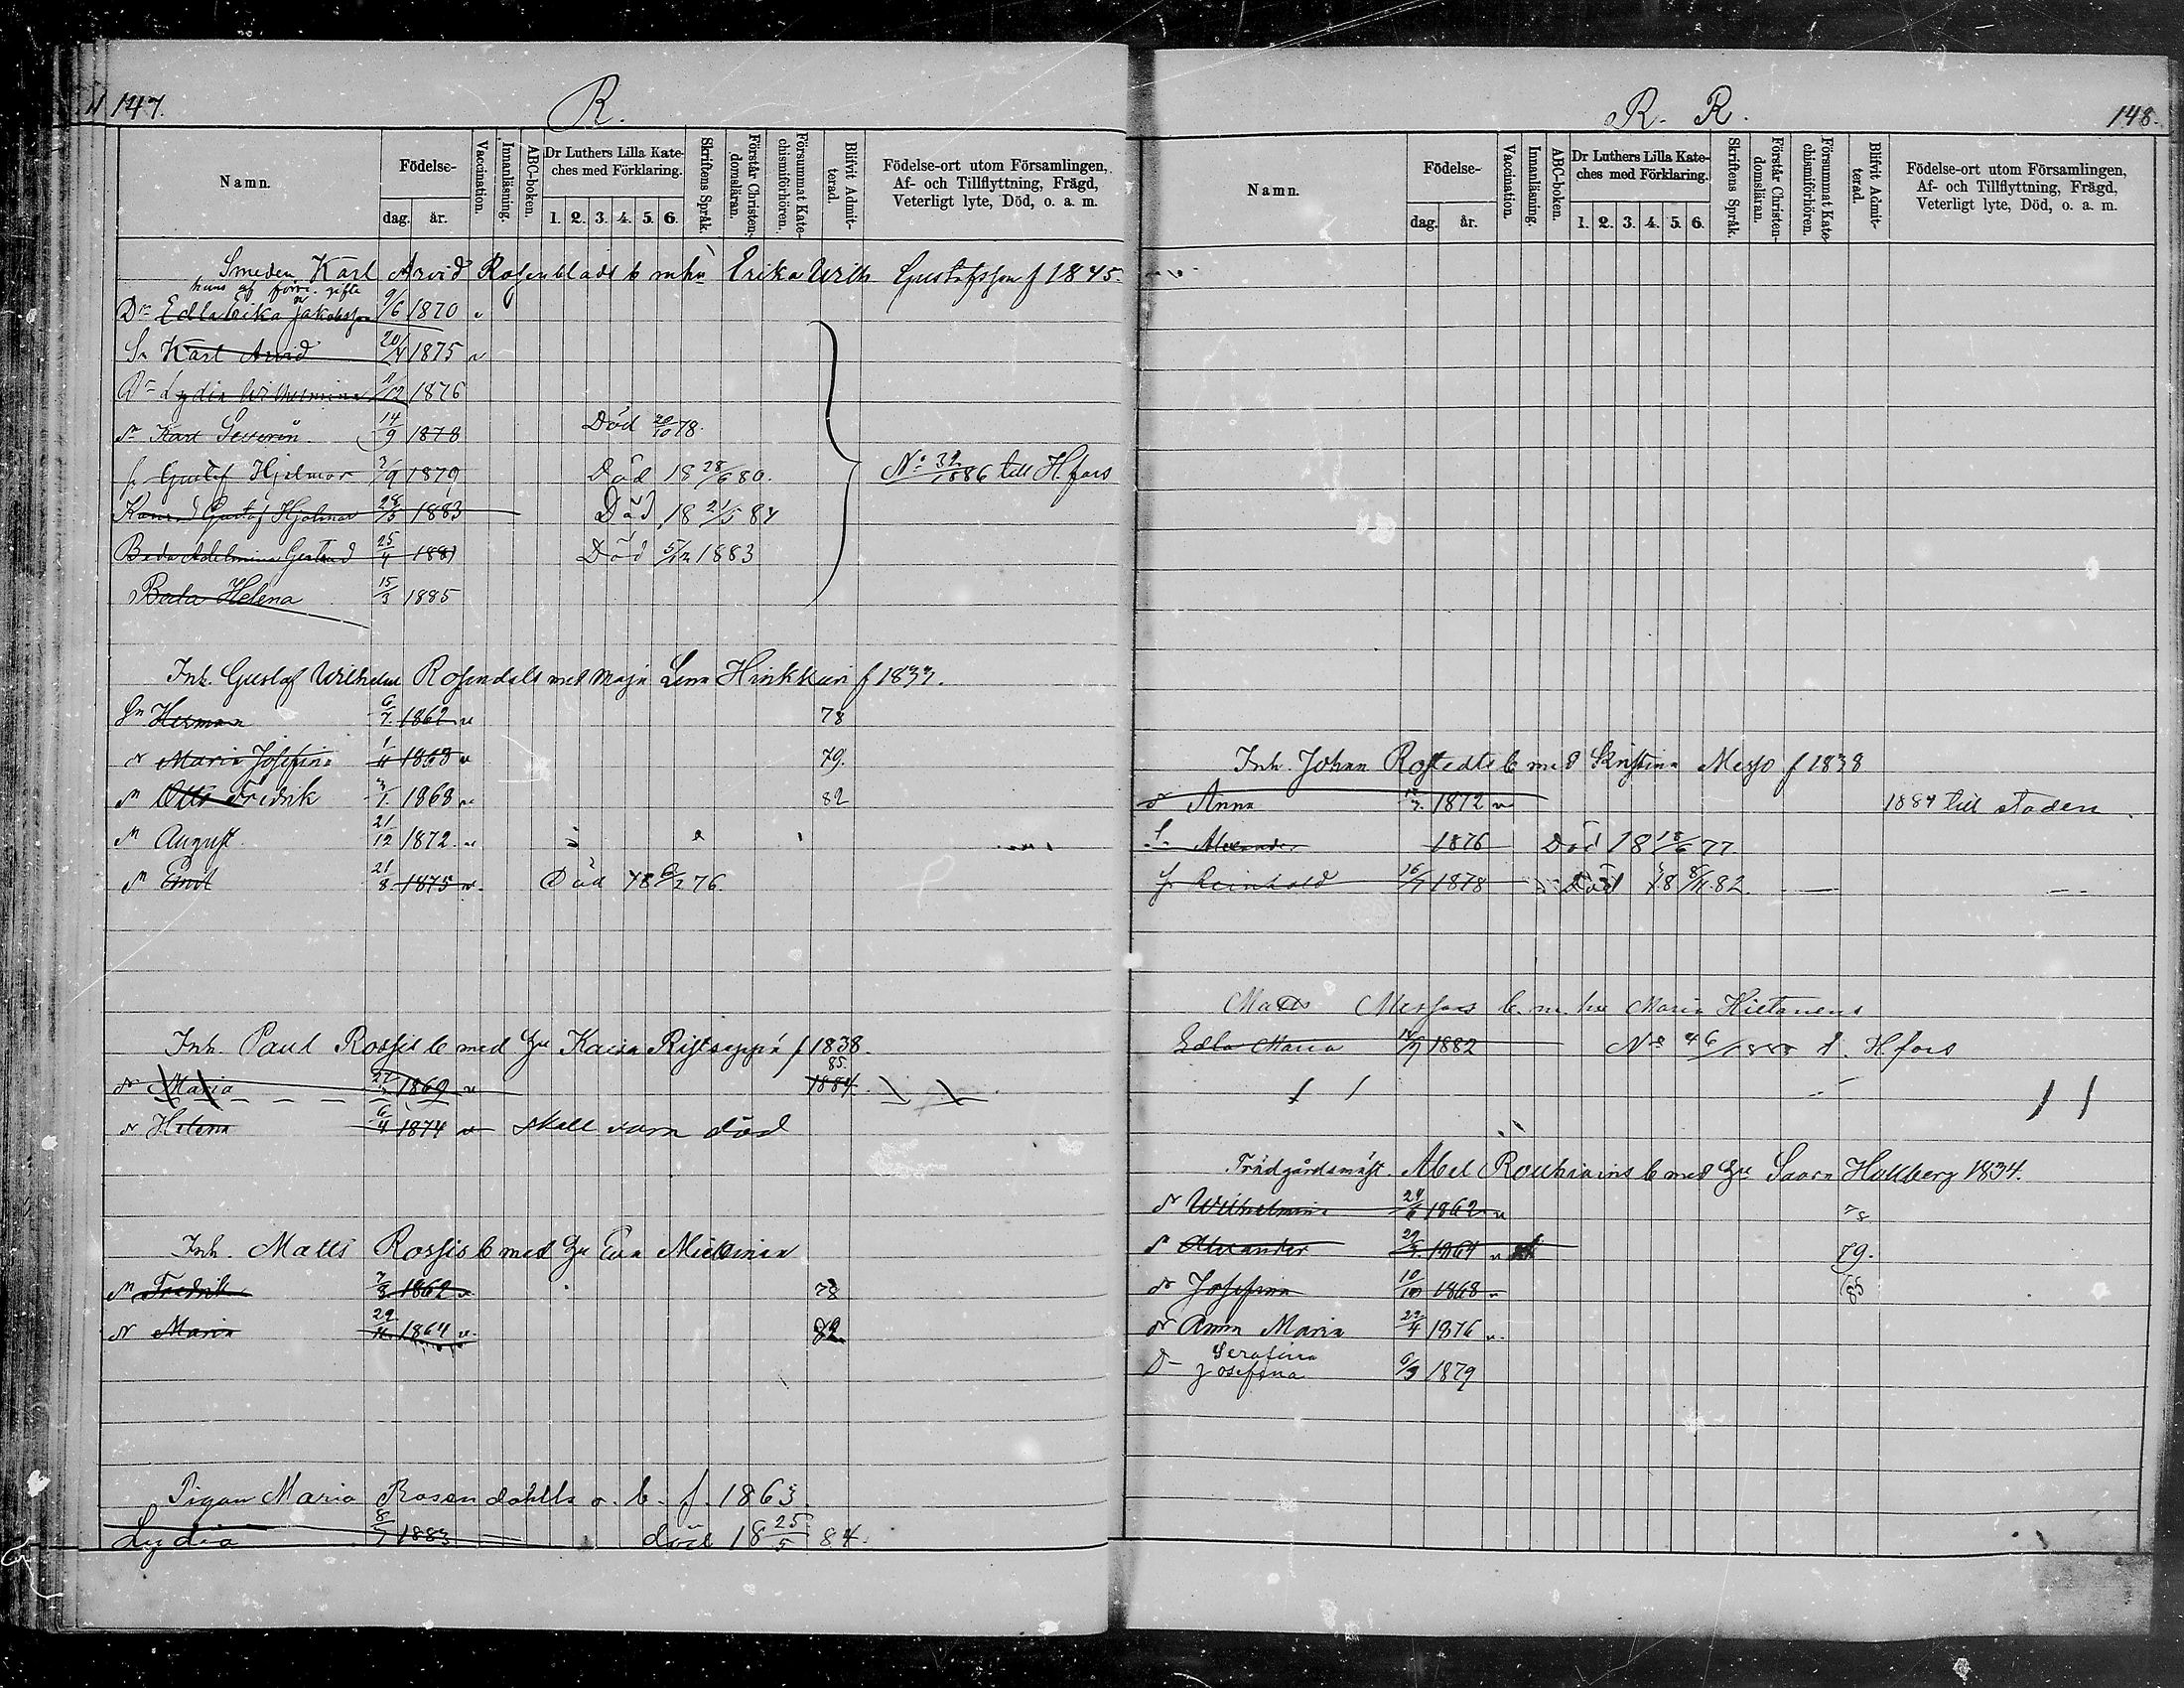 147.
R.
Namn.
Födelse-
dag.
år.
Vaccination.
Innanläsning.
ABC-boken.
Dr Luthers Lilla Kate-
ches med Förklaring.
1. 2. 3. 4. 5. 6.
Skriftens Språk.
Förstår Christen-
domsläran.
Försummat Kate-
chismiförhören.
Blifvit Admit-
terad.
Födelse-ort utom Församlingen,
Af- och Tillflyttning, Frägd,
Veterligt lyte, Död, o. a. m.
Smeden Karl Arvid Rosenblads b m hu Erika Wilh Gustafsson f 1845.
hans af förra gifte
Dr Edla Erika Jakobsson 9/6 1870 v
Sn Karl Arvid 20/4 1875 v
Dr Lydia Wilhelmina /12 1876
Sn Karl Severin 14/9 1878 Död 20/10 78.
Sn Gustaf Hjalmar 3/9 1879 Död 18 28/6 80. No 32/1886 till H.fors
Konrad Gustaf Hjalmar 28/3 1883 Död 18 21/5 84
Beda Adelmina Gertrud 25/4 1881 Död 5/12 1883
Beda Helena 15/3 1885
Inh. Gustaf Wilhelm Rosendals med Maja Lena Hinkkuri f 1833.
Sn Herman 6/7 1862 v 78
dr Maria Josefina 1/11 1863 v 79.
sn Otto Fredrik 3/1 1868 v 82
sn August 21/12 1872 v
sn Emil 21/8 1875 v Död 18 6/2 76.
Inh. Paul Rossis b med hu Kaisa Ristseppä f 1838.
85.
dr Maria 27/12 1869 v 1884.
dr Helena 6/4 1874 v skall vara död
Inh. Matts Rossis b med hu Eva Mielinen
sn Fredrik 7/3 1862 v 78
dr Maria 29/11 1864 v 82
Pigan Maria Rosendahlls o. b. f. 1863.
Lydia 8/7 1883 död 18 25/5 84.
R. R.
148.
Namn.
Födelse-
dag.
år.
Vaccination.
Innanläsning.
ABC-boken.
Dr Luthers Lilla Kate-
ches med Förklaring.
1. 2. 3. 4. 5. 6.
Skriftens Språk.
Förstår Christen-
domsläran.
Försummat Kate-
chismiförhören.
Blifvit Admit-
terad.
Födelse-ort utom Församlingen,
Af- och Tillflyttning, Frägd,
Veterligt lyte, Död, o. a. m.
Inh. Johan Rostedts b med Kristina Messo f 1838
dr Anna 1872 v 1884 till staden
S. Alexander 1876 Död 18 18/6 77
sn Reinhold 16/7 1878 Död 18 8/11 82.
Matts b. m. hu Maria Hietanens
Edla Maria 14/9 1882 No 46/1888 t. H.fors
Trädgårdsmäst. Abel Rouhiains b med hu Saara Hallberg 1834.
dr Wilhelmina 24/6 1862 v 78
s Alexander 29/9 1864 v 79.
dr Josefina 10/10 1868 v
dr Anna Maria 22/4 1876 v
Serafina
D- Josefina 6/9 1879